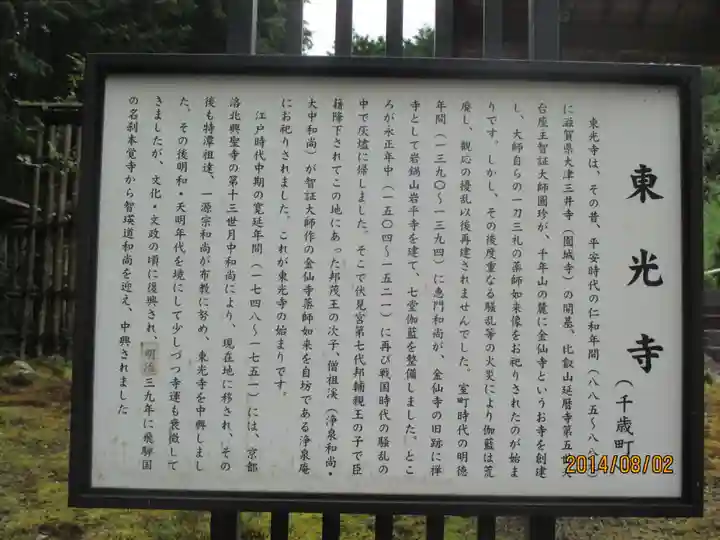 東光寺
（千歳町
東光寺は、その昔、平安時代の仁和年間（八八五～八八九）
に滋賀県大津三井寺（園城寺）の開基、比叡山延暦寺第五世天
台座主智証大師圓珍が、千年山の麓に金仙寺というお寺を創建
し、大師自らの一刀三礼の薬師如来像をお祀りされたのが始ま
りです。しかし、その後度重なる騒乱等の火災により伽藍は荒
廃し、観応の擾乱以後再建されませんでした。室町時代の明徳
年間（一三九〇～一三九四）に惠門和尚が、金仙寺の旧跡に禅
寺として岩鍋山岩平寺を建て、七堂伽藍を整備しました。とこ
ろが永正年中（一五〇四～一五二一）に再び戦国時代の騒乱の
中で灰燼に帰しました。そこで伏見宮第七代邦輔親王の子で臣
籍降下されてこの地にあった邦茂王の次子、僧祖渓（浄泉和尚・
大中和尚）が智証大師作の金仙寺薬師如来を自坊である浄泉庵
にお祀りされました。これが東光寺の始まりです。
江戸時代中期の寛延年間（一七四八～一七五一）には、京都
洛北興聖寺の第十三世月中和尚により、現在地に移され、その
後も特潭祖達、一源宗和尚が布教に努め、東光寺を中興しまし
た。その後明和・天明年代を境にして少しづつ寺運も衰微して
きましたが、文化・文政の頃に復興され、明治三九年に飛騨国
の名刹本覚寺から智瑛道和尚を迎え、中興されました
2014/08/02